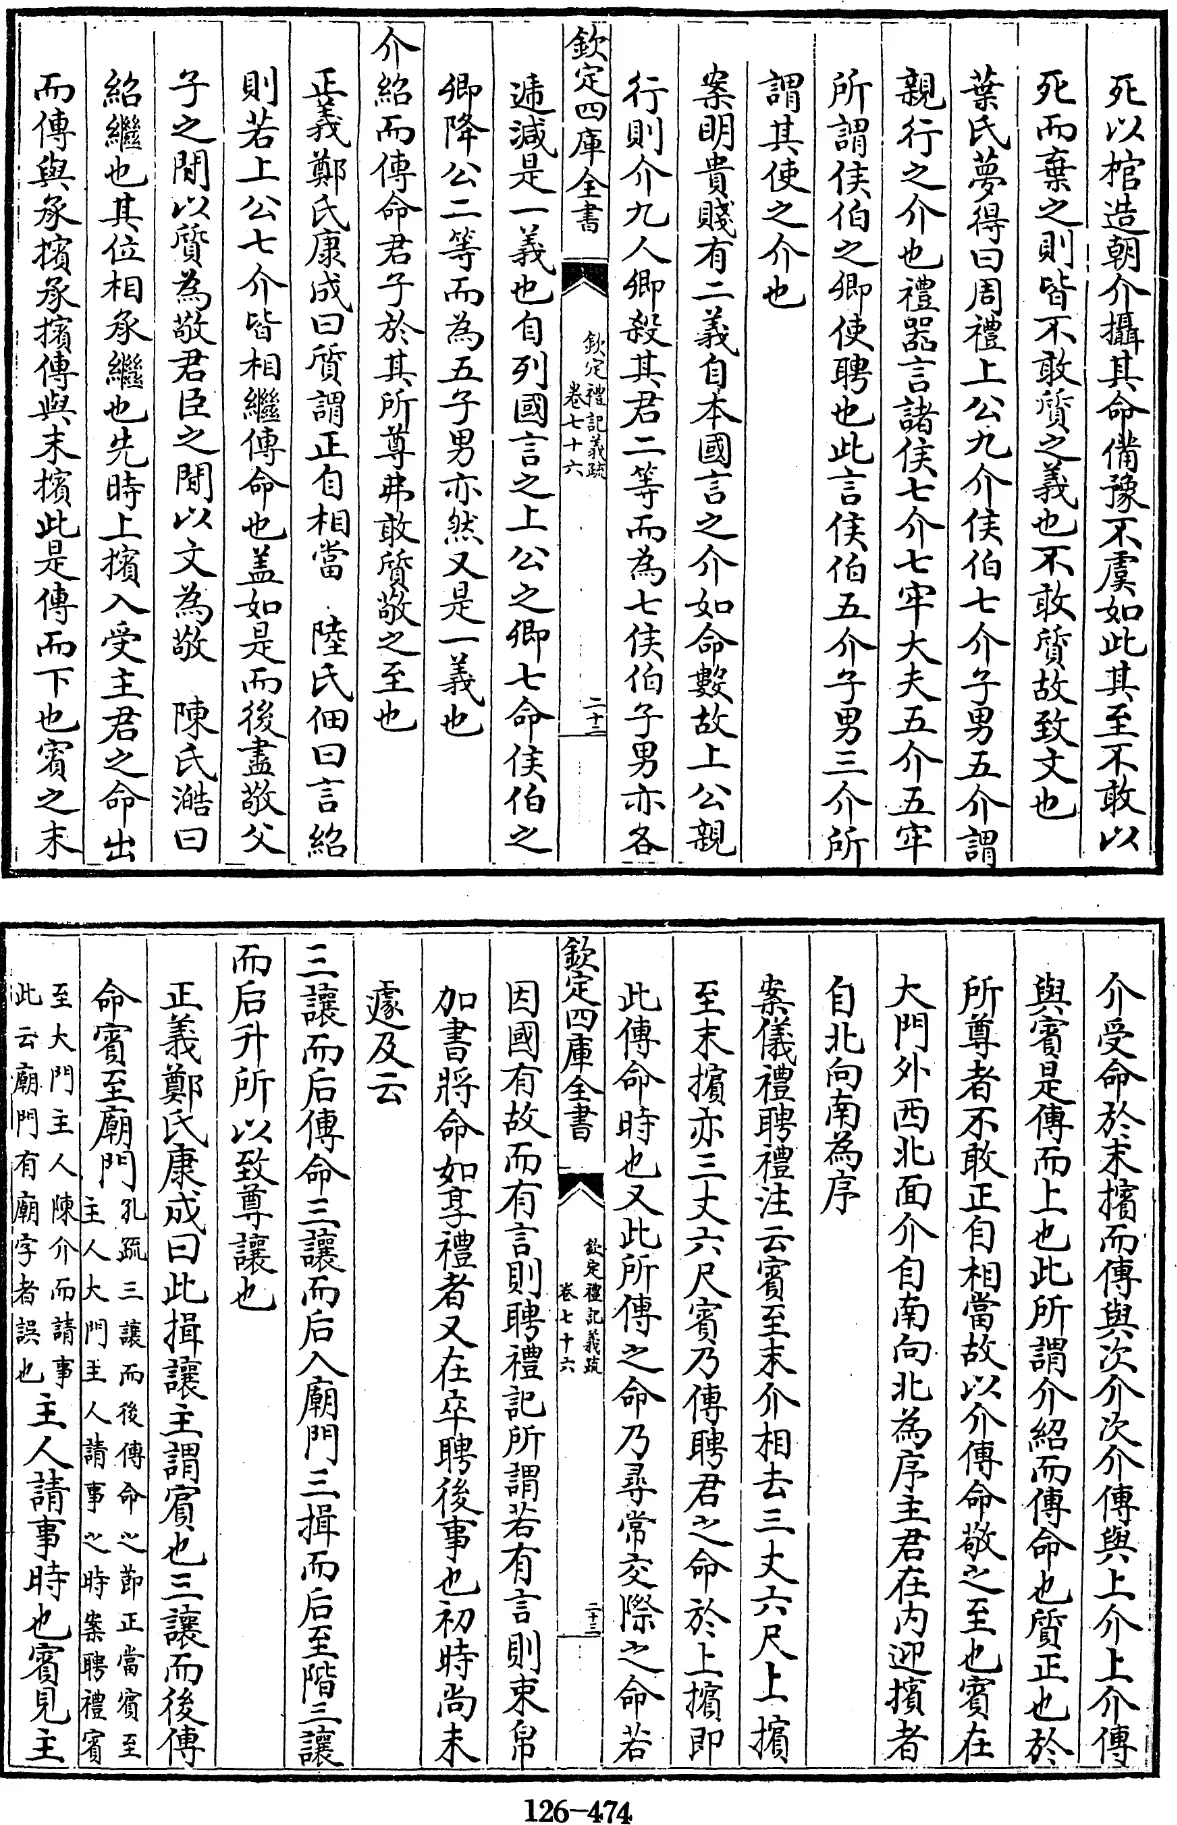 死以棺造朝介攝其命備豫不虞如此其至不敢以
死而棄之則皆不敢質之義也不敢質故致文也
葉氏夢得曰周禮上公九介侯伯七介子男五介謂
親行之介也禮器言諸侯七介七牢大夫五介五牢
所謂侯伯之卿使聘也此言侯伯五介子男三介所
謂其使之介也
案明貴賤有二義自本國言之介如命數故上公親
行則介九人卿殺其君二等而為七侯伯子男亦各
欽定四庫全書
欽定禮記義疏
卷七十六
二十二
遞減是一義也自列國言之上公之卿七命侯伯之
卿降公二等而為五子男亦然又是一義也
介紹而傳命君子於其所尊弗敢質敬之至也
正義鄭氏康成曰質謂正自相當 陸氏佃曰言紹
則若上公七介皆相繼傳命也盖如是而後盡敬父
子之間以質為敬君臣之間以文為敬 陳氏澔曰
紹繼也其位相承繼也先時上擯入受主君之命出
而傳與承擯承擯傳與末擯此是傳而下也賓之末
介受命於末擯而傳與次介次介傳與上介上介傳
與賓是傳而上也此所謂介紹而傳命也質正也於
所尊者不敢正自相當故以介傳命敬之至也賓在
大門外西北面介自南向北為序主君在内迎擯者
自北向南為序
案儀禮聘禮注云賓至末介相去三丈六尺上擯
至末擯亦三丈六尺賓乃傳聘君之命於上擯即
此傳命時也又此所傳之命乃尋常交際之命若
欽定四庫全書
欽定禮記義疏
卷七十六
二十三
因國有故而有言則聘禮記所謂若有言則束帛
加書將命如享禮者又在卒聘後事也初時尚未
遽及云
三讓而后傳命三讓而后入廟門三揖而后至階三讓
而后升所以致尊讓也
正義鄭氏康成曰此揖讓主謂賓也三讓而後傳
命賓至廟門
孔疏三讓而後傳命之節正當賓至
主人大門主人請事之時案聘禮賓
至大門主人陳介而請事
此云廟門有廟字者誤也
主人請事時也賓見主
126-474